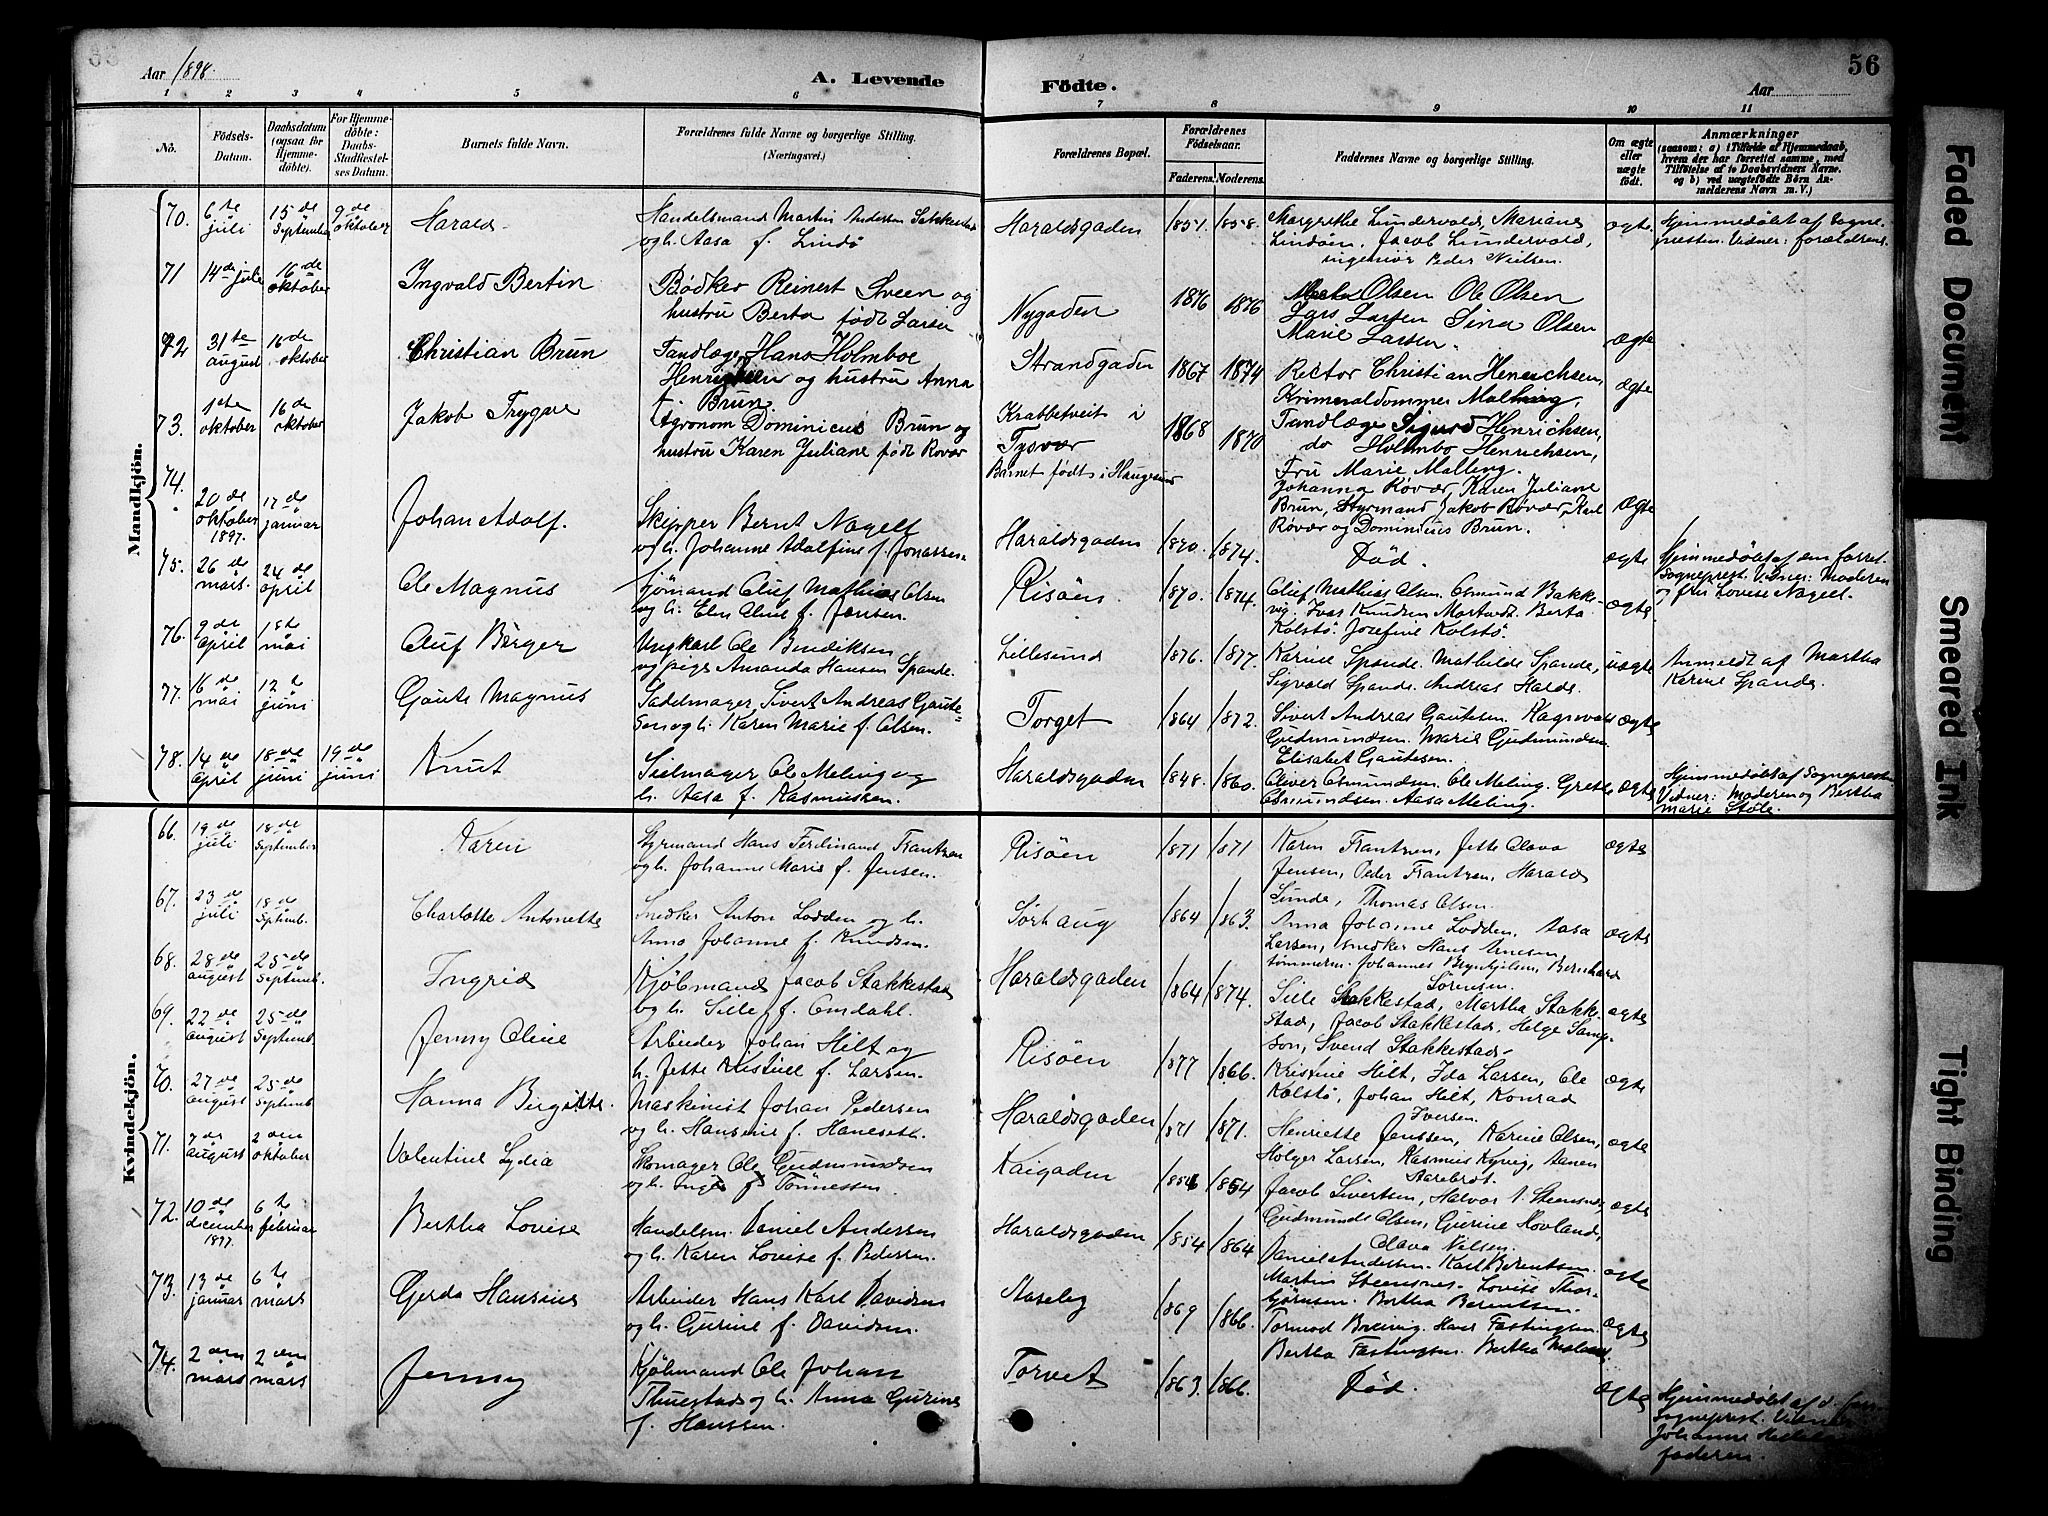 Aar 1898.
A. Levende
Födte.
Aar
56
1 2 3 4 5 6 7 8 9 10 11
No.
Födsels-Datum.
Daabsdatum (ogsaa for Hjemmedöbte).
For Hjemmedöbte: Daabs-Stadfæstelses Datum.
Barnets fulde Navn.
Forældrenes fulde Navne og borgerlige Stilling. (Næringsvei.)
Forældrenes Bopæl.
Forældrenes Födselsaar.
Faderens. Moderens.
Faddernes Navne og borgerlige Stilling.
Om ægte eller uægte födt.
Anmærkninger
(saasom: a) i Tilfælde af Hjemmedaab,
hvem der har forrettet samme, med
Tilföielse af to Daabsvidners Navne.
og b) ved uægtefödte Börn An-
melderens Navn m. V.)
Mandkjön.
70. 6te juli 15de September 9de oktober Harald Handelsmand Martin Andersen Stakkestad
og h. Aasa f. Lindö
Haraldsgaden 1851. 1858. Margrethe Lundervold, Mariane
Lindöen, Jacob Lundervold,
ingeniör Peder Nielsen.
ægte Hjemmedöbt af Sogne-
presten. Vidner: forældrene
71 14de juli 16de oktober Ingvald Bertin Bødker Reinert Sveen og
hustru Berta født Larsen
Nygaden 1876 1876 Marta Olsen Ole Olsen
Lars Larsen Sina Olsen
Marie Larsen.
ægte
72 31te august 16de oktober Christian Brun Tandlæge Hans Holmboe
Henrichsen og hustru Anna
f. Brun.
Strandgaden 1867 1874 Rector Christian Henrichsen,
Krimeraldommer Malling,
Tandlæge Sigurd Henrichsen,
do Holmbo Henrichsen,
Fru Marie Malling.
ægte
73. 1ste oktober 16de oktober Jakob Trygve Agronom Dominicus Brun og
hustru Karen Juliane født Rovær
Krabbetveit i
Tysvær
Barnet født i Haugesund
1868 1870 Johanna Røvær, Karen Juliane
Brun, Styrmand Jakob Røvær, Karl
Røvær og Dominicus Brun.
ægte
74. 20de oktober 1897. 17de januar Johan Adolf. Skipper Bernt Nagell
og h. Johanne Adolfine f. Jonassen
Haraldsgaden 1870. 1874. Död.
ægte Hjemmedöbt af den forret.
Sogneprest. Vidner: Moderen
og fru Lovise Nagell.
75. 26de mars 24de april Ole Magnus Sjömand Oluf Mathias Olsen
og h. Elen Oline f. Jensen.
Risöen 1870. 1874. Oluf Mathias Olsen. Osmund Bakke-
vig. Ivar Knudsen Mortvedt. Berta
Kolstö. Josefine Kolstö.
ægte
76. 9de April 1ste mai Oluf Börger Ungkarl Ole Bendiksen
og pige Amanda Hansen Spande.
Lillesund 1876. 1877. Karine Spande. Mathilde Spande,
Sigvald Spande. Andreas Halde.
uægte Anmeldt af Martha
Karine Spande.
77. 16de mai 12te juni Gaute Magnus Sadelmager Sivert Andreas Gaute-
sen og h. Karen Marie f. Olsen.
Torget 1864 1872. Sivert Andreas Gautesen. Ragnvald
Gudmundsen. Marie Gudmundsen.
Elisabet Gautesen.
ægte
78. 14de April 18de juni 19de juni Knut Seilmager Ole Meling og
h. Aasa f. Rasmussen.
Haraldsgaden 1848. 1860. Oliver Osmundsen. Ole Meling. Grethe
Osmundsen. Aasa Meling.
ægte Hjemmedöbt af Sognepresten
Vidner: Moderen og Bertha
Marie Stöle.
Kvindekjön.
66. 19de juli 18de September Karen Styrmand Hans Ferdinand Frantzen
og h. Johanne Marie f. Jensen.
Risöen 1871 1871 Karen Frantzen, Jette Olava
Jensen, Peder Frantzen, Harald
Sunde, Thomas Olsen.
ægte
67. 23de juli 18de Septemb. Charlotte Antonette Snedker Anton Lodden og h.
Anna Johanne f. Knudsen.
Sörhaug 1864 1863. Anna Johanne Lodden, Aasa
Larsen, snedker Hans Arnesen
tömmerm. Johannes Brynhjelsen, Bernhard
Sörensen.
ægte
68. 28de august 25de Septemb. Ingrid Kjöbmand Jacob Stakkestad
og h. Sille f. Omdahl.
Haraldsgaden 1864 1874. Sille Stakkestad, Martha Stakke-
stad, Jacob Stakkestad, Helge Samp-
son, Svend Stakkestad.
ægte
69. 22de august 25de Septemb. Jenny Oline Arbeider Johan Hilt og
h. Jette Kristine f. Larsen.
Risöen 1877 1866. Kristine Hilt, Ida Larsen, Ole
Kolstö, Johan Hilt, Konrad
Iversen.
ægte
70. 27de august 25de Septemb. Hanna Birgitte. Maskinist Johan Pedersen
og h. Hansine f. Haneseth.
Haraldsgaden 1871 1871. Henriette Jenssen, Karine Olsen,
Holger Larsen, Rasmus Kyvig, Aanen
Aarebrot.
ægte
71. august 2den oktober Valentine Lydia Skomager Ole Gudmundsen
og h. Inger f. Tönnessen.
Kaigaden 1854 Jacob Sivertsen, Halvor
Gudmund Olsen, Gurine Hovland,
Olava Nilsen.
ægte
72. 10de december 1897. 6te februar Bertha Lovise Handelsm. Daniel Andersen
og h. Karen Lovise f. Pedersen.
Haraldsgaden 1854 1864 Daniel Andersen. Karl Berentsen.
Martin Steensnes. Lovise Thor-
björnsen. Bertha Berentsen.
ægte
73. 13de januar 6te mars Gerda Hansine Arbeider Hans Karl Davidsen
og h. Gurine f. Davidsen.
1869 1866. Tormod Breivig. Hans Fastingsen.
Bertha Fastingsen. Bertha
ægte
74. 2den mars 2den mars Jenny Kjöbmand Ole Johan
Thuestad og h. Anna Gurine
f. Hanssen.
Torvet 1863. 1866. Död.
ægte Hjemmedöbt af d.
Sogneprest.
Johanne
faderen.
Faded Document
Smeared Ink
Tight Binding